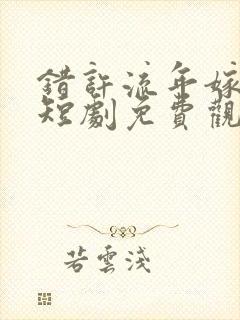 錯許流年嫁
短劇免費觀
若雲淺